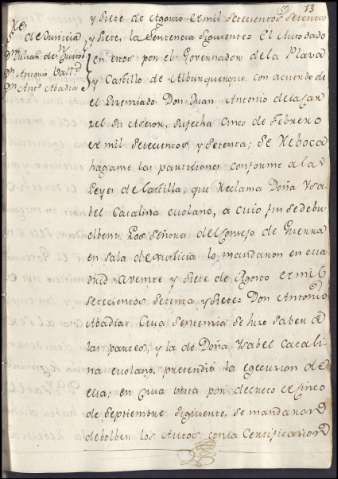 13
de Justicia
Dn Antonio
Dn Anto Abadia
y siete de Agosto de mil Setecientos setenta
y siete, la Sentencia siguiente: El Auto dado
en otros por el Governador de la Plaza
y Castillo de Alburquerque con acuerdo de
el Lizenciado Don Juan Antonio de la
su Asesor, su fecha Cinco de Febrero
de mil Setecientos y setenta; Se reboca
hagame las particiones conforme a la
Leyes de Castilla, que reclama Doña Ysa
bel Catalina a cuio fin se debu
elben. Los Señores del Consejo de Guerra
en Sala de Justicia lo mandaron en Ma
drid a veinte y siete de Agosto de mil
Setecientos setenta y siete = Don Antonio
Abadia = Cuya Sentencia se hizo saber a
las partes, y la de Doña Ysabel Catali
na pretendio la execucion de
ella; en cuia vista por decreto de cinco
de Septiembre siguiente, se mandaron
debolber los Autos con la Certificacion